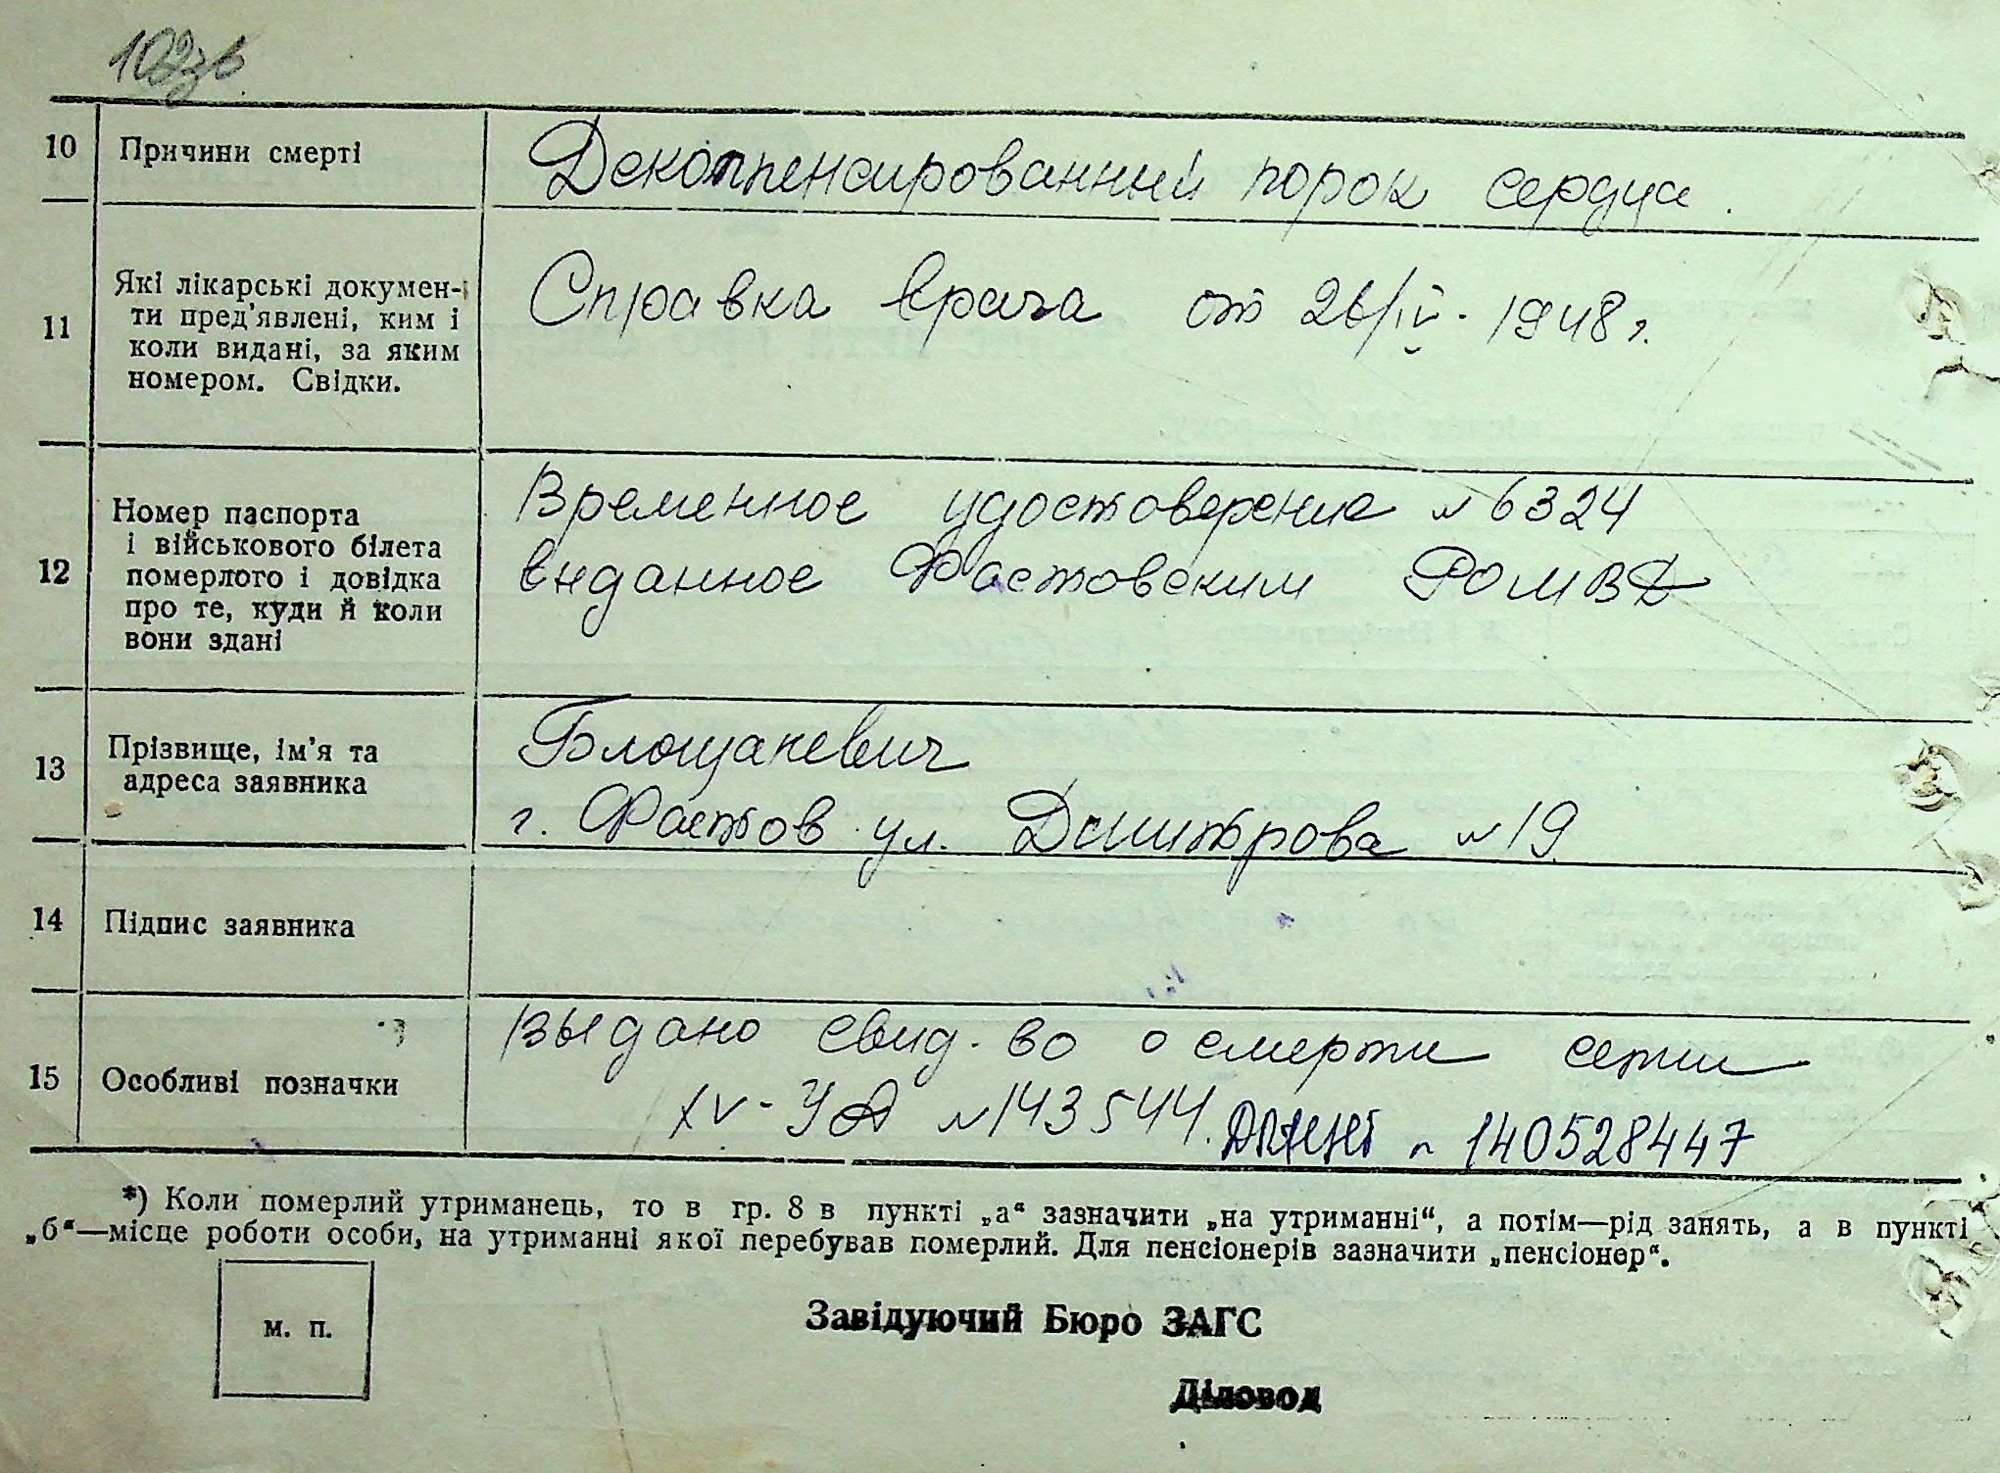 102зв
10 Причини смерті Декомпенсированный порок сердца.
11 Які лікарські докумен-
ти пред'явлені, ким і
коли видані, за яким
номером. Свідки.
Справка врача от 26/IV - 1948 г.
12 Номер паспорта
і військового білета
померлого і довідка
про те, куди й коли
вони здані
Временное удостоверение №6324
выданное Фастовским РОМВД
13 Прізвище, ім'я та
адреса заявника
г. Фастов ул. Димитрова №19
14 Підпис заявника
15 Особливі позначки
Выдано свид-во о смерти
XV-УА №143544. № 140528447
*) Коли померлий утриманець, то в гр. 8 в пункті „а“ зазначити „на утриманні“, а потім—рід занять, а в пункті
„б“—місце роботи особи, на утриманні якої перебував померлий. Для пенсіонерів зазначити „пенсіонер“.
М. П.
Завідуючий Бюро ЗАГС
Діловод